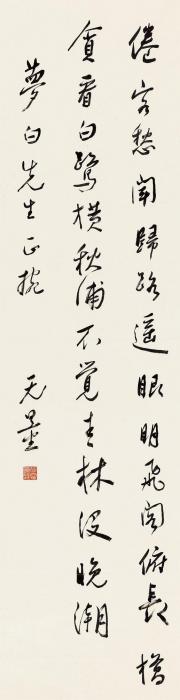 倦客愁闻歸路遥眼明飛阁俯長橋
貪看白鷺横秋浦不觉青林没晚潮
夢白先生正捥
无量